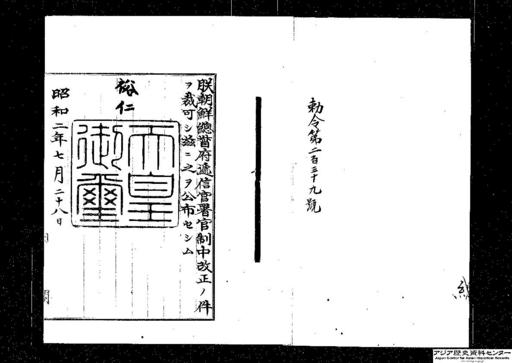 勅令第二百三十九號
朕朝鮮總督府遞信官署官制中改正ノ件
ヲ裁可シ玆ニ之ヲ公布セシム
裕仁
天皇御璽
昭和二年七月二十八日
アジア歴史資料センター
Japan Center for Asian Historical Records